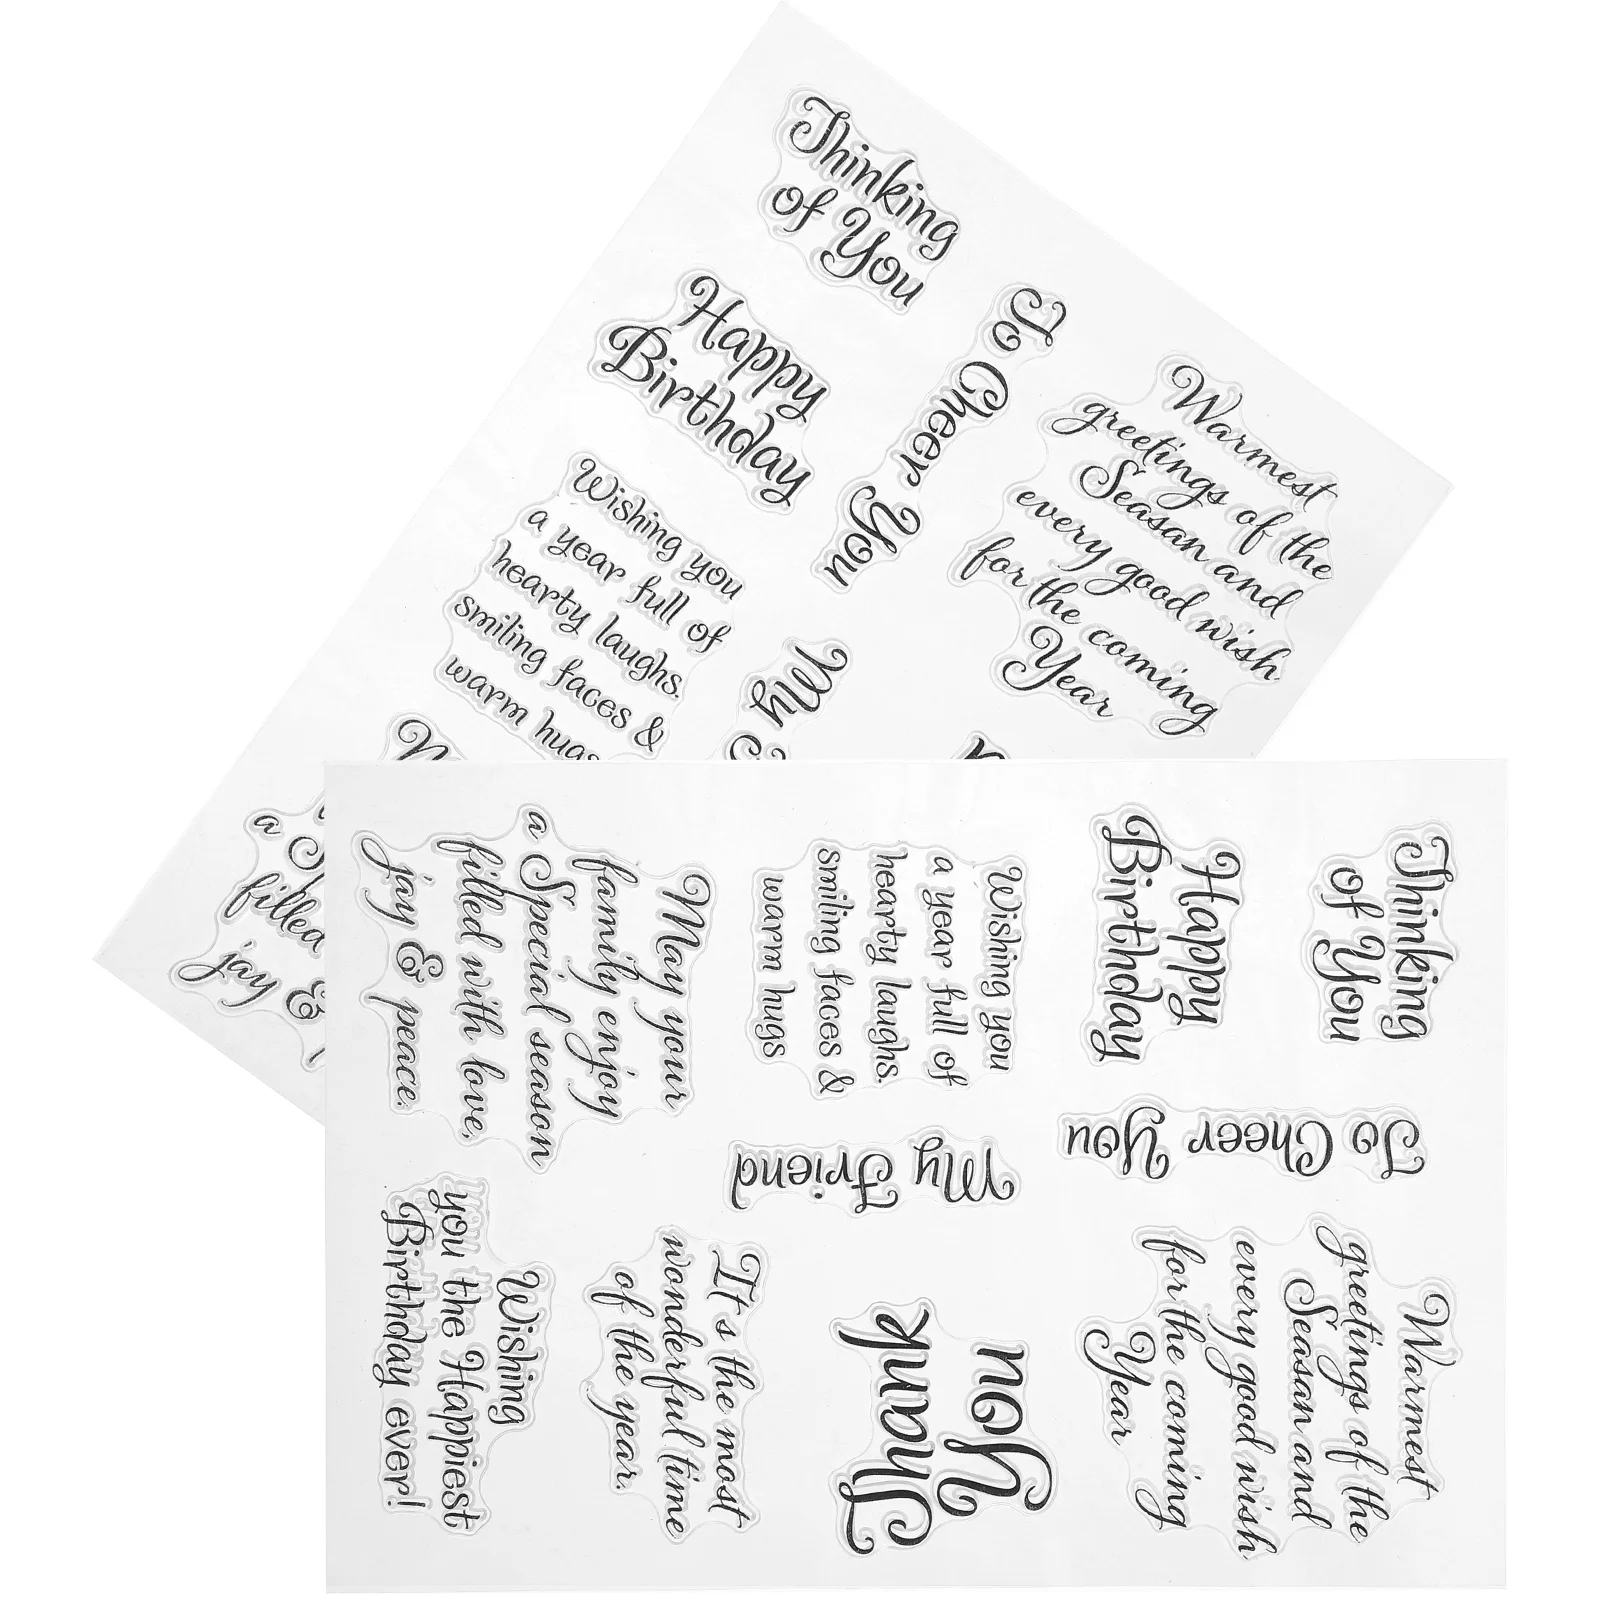 Thinking
of You
Happy
Birthday
To Cheer You
Wishing you
a year full of
hearty laughs.
smiling faces &
warm hugs
Warmest
greetings of the
Seasan and
every good wish.
for the coming
Year
My
a
filled
jay &
Thinking
of You
Happy
Birthday
To Cheer You
Wishing you
a year full of
hearty laughs.
smiling faces &
warm hugs
My Friend
May your
family enjoy
a Special season
filled with love,
jay & peace.
Warmest
greetings of the
Seasan and
every good wish.
for the coming
Year
Thank
you
It's the most
wonderful time
of the year.
Wishing
you the Happiest
Birthday ever!